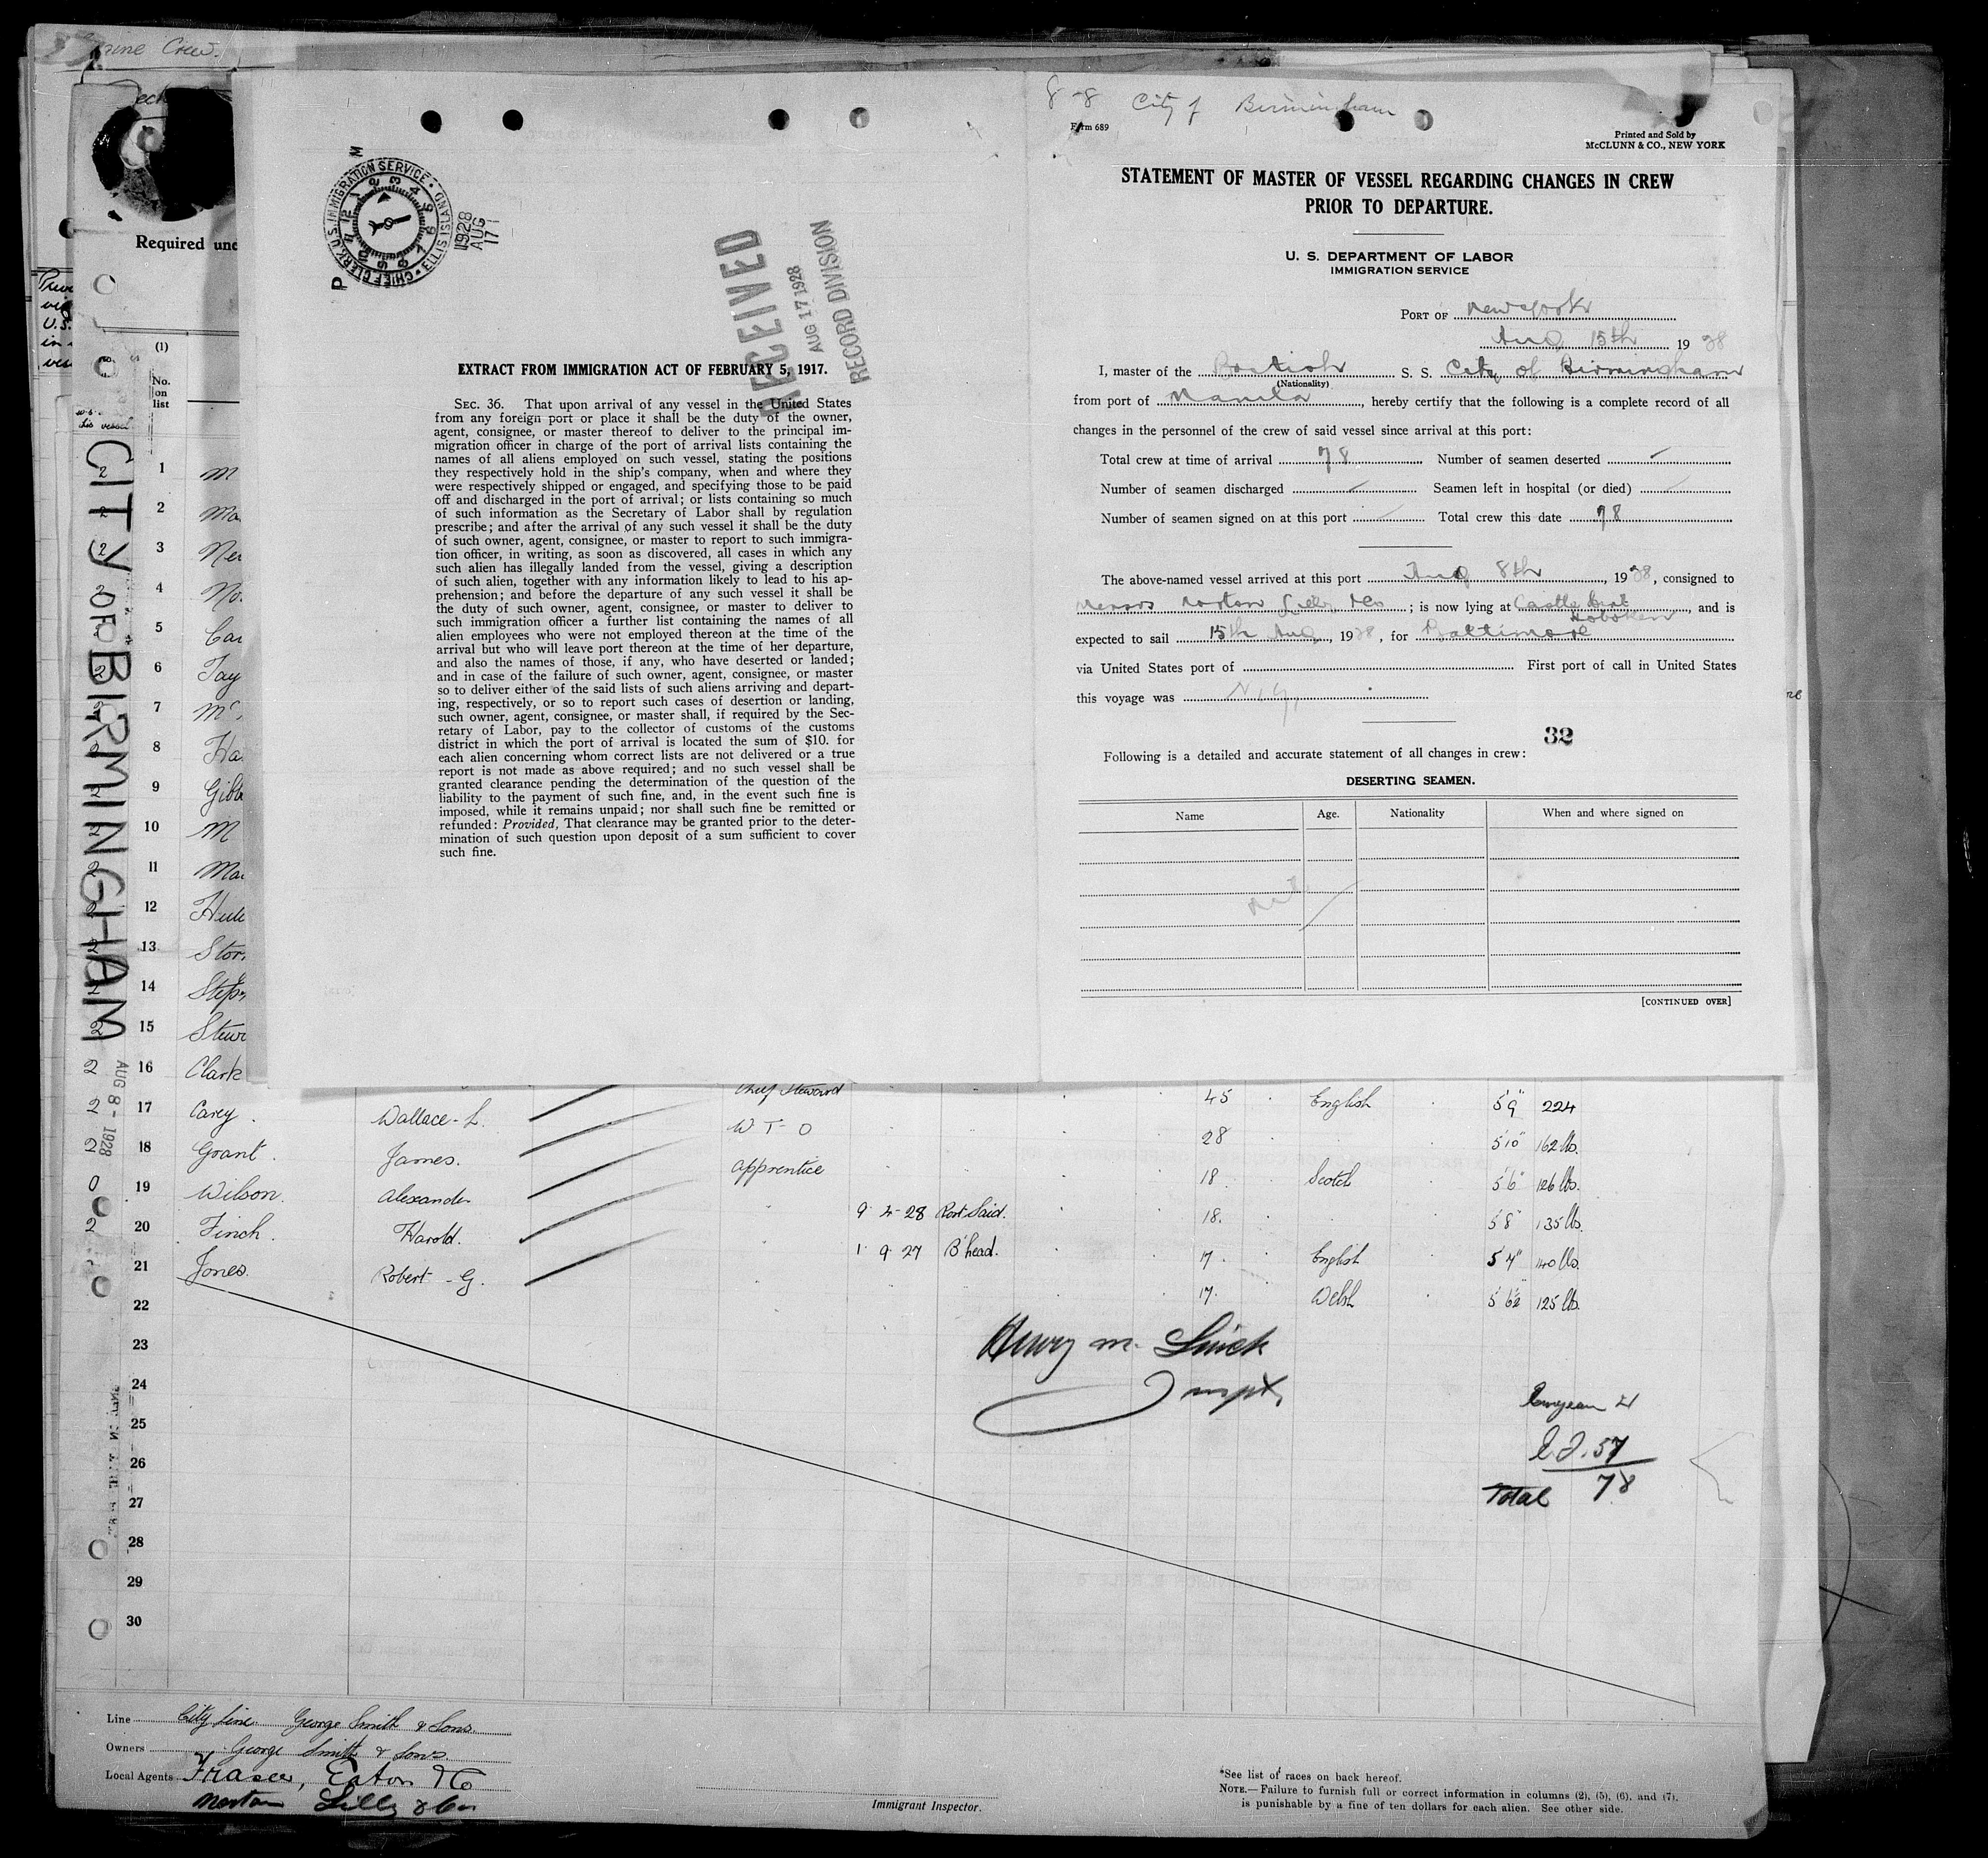 rine Crew.
Required und
(1)
No.
on
list
CITY OF BIRMINGHAM
AUG 8 - 1928
CHIEF CLERK, U.S. IMMIGRATION SERVICE. ELLIS ISLAND
1928
AUG
17
P M
RECEIVED
AUG 17 1928
RECORD DIVISION
EXTRACT FROM IMMIGRATION ACT OF FEBRUARY 5, 1917.
SEC. 36. That upon arrival of any vessel in the United States
from any foreign port or place it shall be the duty of the owner,
agent, consignee, or master thereof to deliver to the principal im-
migration officer in charge of the port of arrival lists containing the
names of all aliens employed on such vessel, stating the positions
they respectively hold in the ship's company, when and where they
were respectively shipped or engaged, and specifying those to be paid
off and discharged in the port of arrival; or lists containing so much
of such information as the Secretary of Labor shall by regulation
prescribe; and after the arrival of any such vessel it shall be the duty
of such owner, agent, consignee, or master to report to such immigra-
tion officer, in writing, as soon as discovered, all cases in which any
such alien has illegally landed from the vessel, giving a description
of such alien, together with any information likely to lead to his ap-
prehension; and before the departure of any such vessel it shall be
the duty of such owner, agent, consignee, or master to deliver to
such immigration officer a further list containing the names of all
alien employees who were not employed thereon at the time of the
arrival but who will leave port thereon at the time of her departure,
and also the names of those, if any, who have deserted or landed;
and in case of the failure of such owner, agent, consignee, or master
so to deliver either of the said lists of such aliens arriving and depart-
ing, respectively, or so to report such cases of desertion or landing,
such owner, agent, consignee, or master shall, if required by the Sec-
retary of Labor, pay to the collector of customs of the customs
district in which the port of arrival is located the sum of $10. for
each alien concerning whom correct lists are not delivered or a true
report is not made as above required; and no such vessel shall be
granted clearance pending the determination of the question of the
liability to the payment of such fine, and, in the event such fine is
imposed, while it remains unpaid; nor shall such fine be remitted or
refunded: Provided, That clearance may be granted prior to the deter-
mination of such question upon deposit of a sum sufficient to cover
such fine.
8-8 City of Birmingham
Form 689
Printed and Sold by
McCLUNN & CO., NEW YORK
STATEMENT OF MASTER OF VESSEL REGARDING CHANGES IN CREW
PRIOR TO DEPARTURE.
U. S. DEPARTMENT OF LABOR
IMMIGRATION SERVICE
PORT OF New York
Aug 15th 19 28
I, master of the British S. S. City of Birmingham
(Nationality)
from port of Manila, hereby certify that the following is a complete record of all
changes in the personnel of the crew of said vessel since arrival at this port:
Total crew at time of arrival 78 Number of seamen deserted
Number of seamen discharged Seamen left in hospital (or died)
Number of seamen signed on at this port Total crew this date 78
The above-named vessel arrived at this port Aug 8th, 1928, consigned to
Messrs Norton Lilly & Co; is now lying at Castle Point Hoboken, and is
expected to sail 15th Aug, 1928, for Baltimore
via United States port of First port of call in United States
this voyage was N.Y.
32
Following is a detailed and accurate statement of all changes in crew:
DESERTING SEAMEN.
Name Age. Nationality When and where signed on
nil
[CONTINUED OVER]
1 M
2 Ma
3 Ne
4 No
5 Car
6 Tay
7 Mc
8 Ha
9 Gibb
10 M
11 Ma
12 Hul
13 Stor
14 Step
15 Stew
2 16 Clark
Chief Steward 45 English 5'9" 224
2 17 Carey. Wallace - L. W T O 28 5'10" 162 lbs.
2 18 Grant. James. apprentice 18 Scotch 5'6" 126 lbs.
0 19 Wilson. Alexander 9-4-28 Port Said. 18. 5'8" 135 lbs.
2 20 Finch. Harold. 1.9.27 B'head. 17. English 5'4" 140 lbs.
21 Jones. Robert - G. 17. Welsh 5'6½" 125 lbs.
22
23
24
25
26
27
28
29
30
Henry M.
Inspt.
57
Total 78
Line City Line George Smith & Sons.
Owners George Smith & Sons.
Local Agents Fraser, Eaton & Co
Norton Lilly & Co
Immigrant Inspector.
*See list of races on back hereof.
NOTE.—Failure to furnish full or correct information in columns (2), (5), (6), and (7),
is punishable by a fine of ten dollars for each alien. See other side.